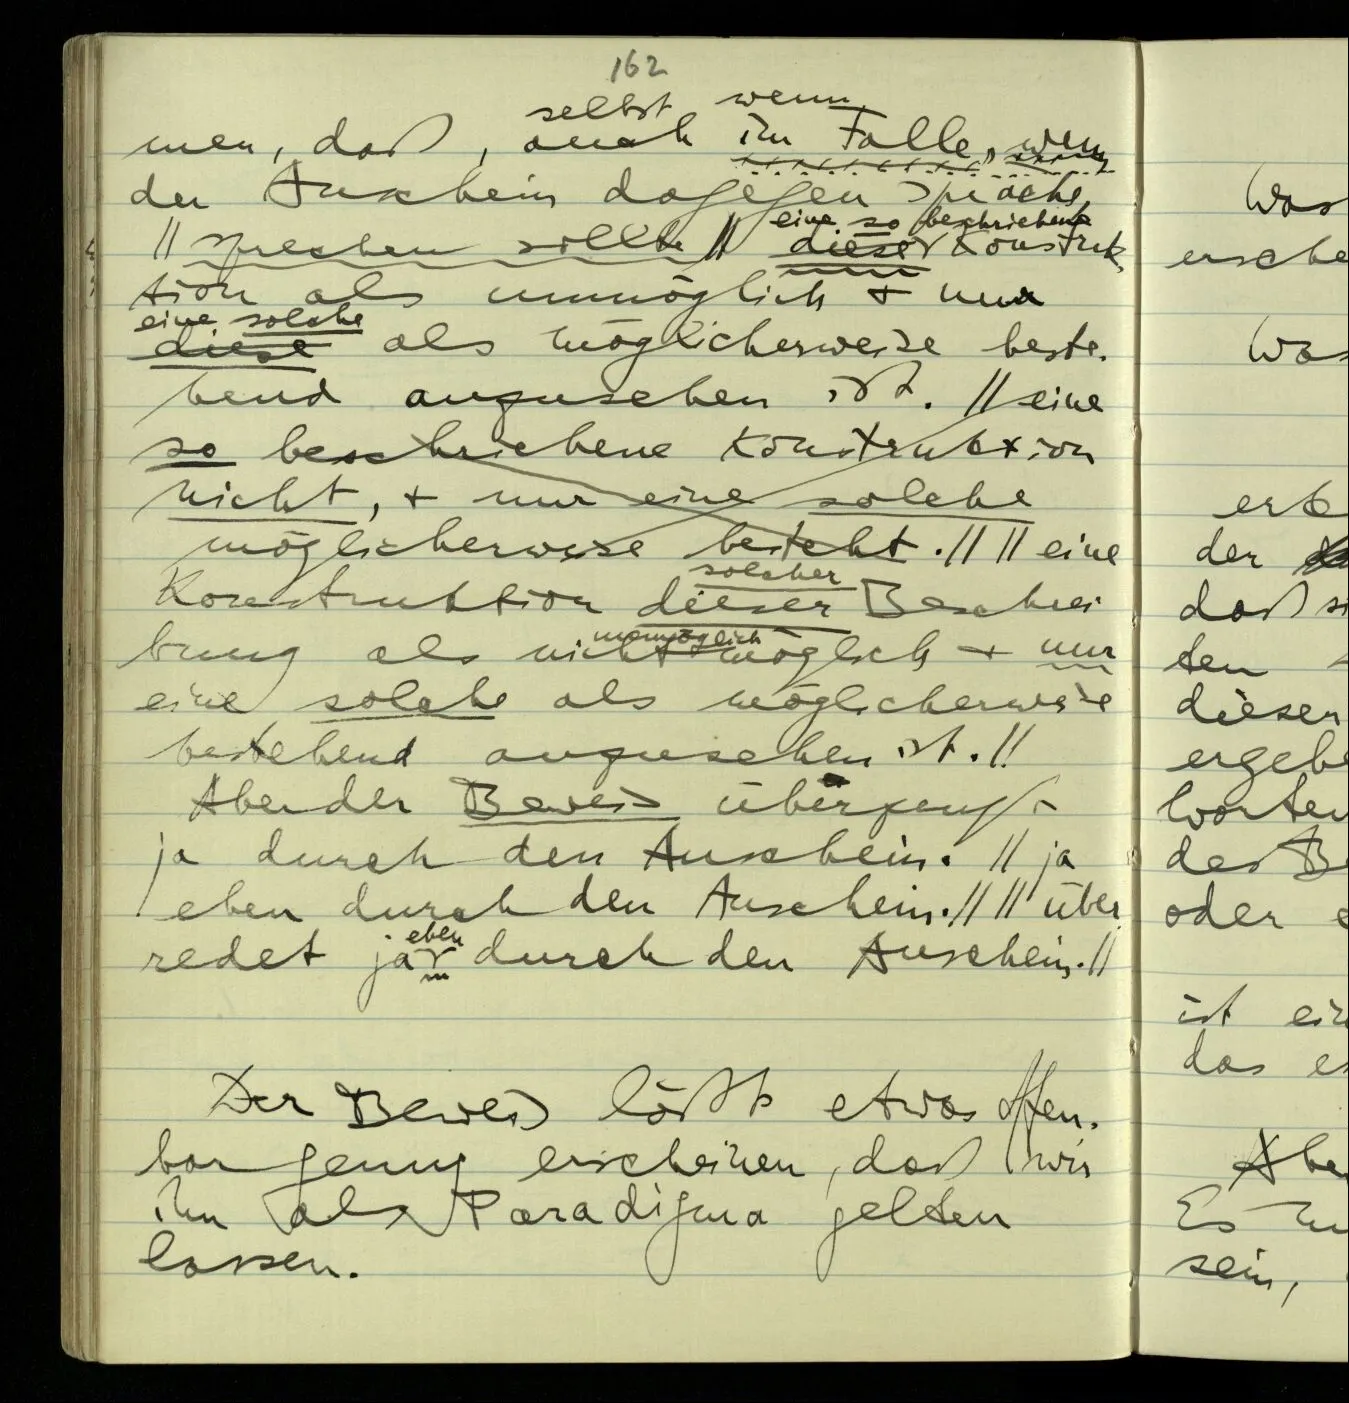 162
selbst wenn
men, daß, auch im Falle, wenn
der Anschein dagegen spräche,
eine so beschriebene
// sprechen sollte // diese Konstruk
tion als unmöglich + nur
eine solche
diese als möglicherweise beste-
hend anzusehen ist. // eine
so beschriebene Konstruktion
nicht, + nur eine solche
möglicherweise besteht. // // eine
solcher
Konstruktion dieser Beschrei
unmöglich
bung als nicht möglich + nur
eine solche als möglicherweise
bestehend anzusehen ist. //
Aber der Beweis überzeugt
ja durch den Anschein. // ja
eben durch den Anschein. // // über
eben
redet ja durch den Anschein. //
Der Beweis läßt etwas offen-
bar genug erscheinen, daß wir
ihn als Paradigma gelten
lassen.
Was
ersche
Was
erk
der
daß si
ten
dieser
ergebe
Worten
des Be
oder e
ist ein
das es
Abe
Es
sein,